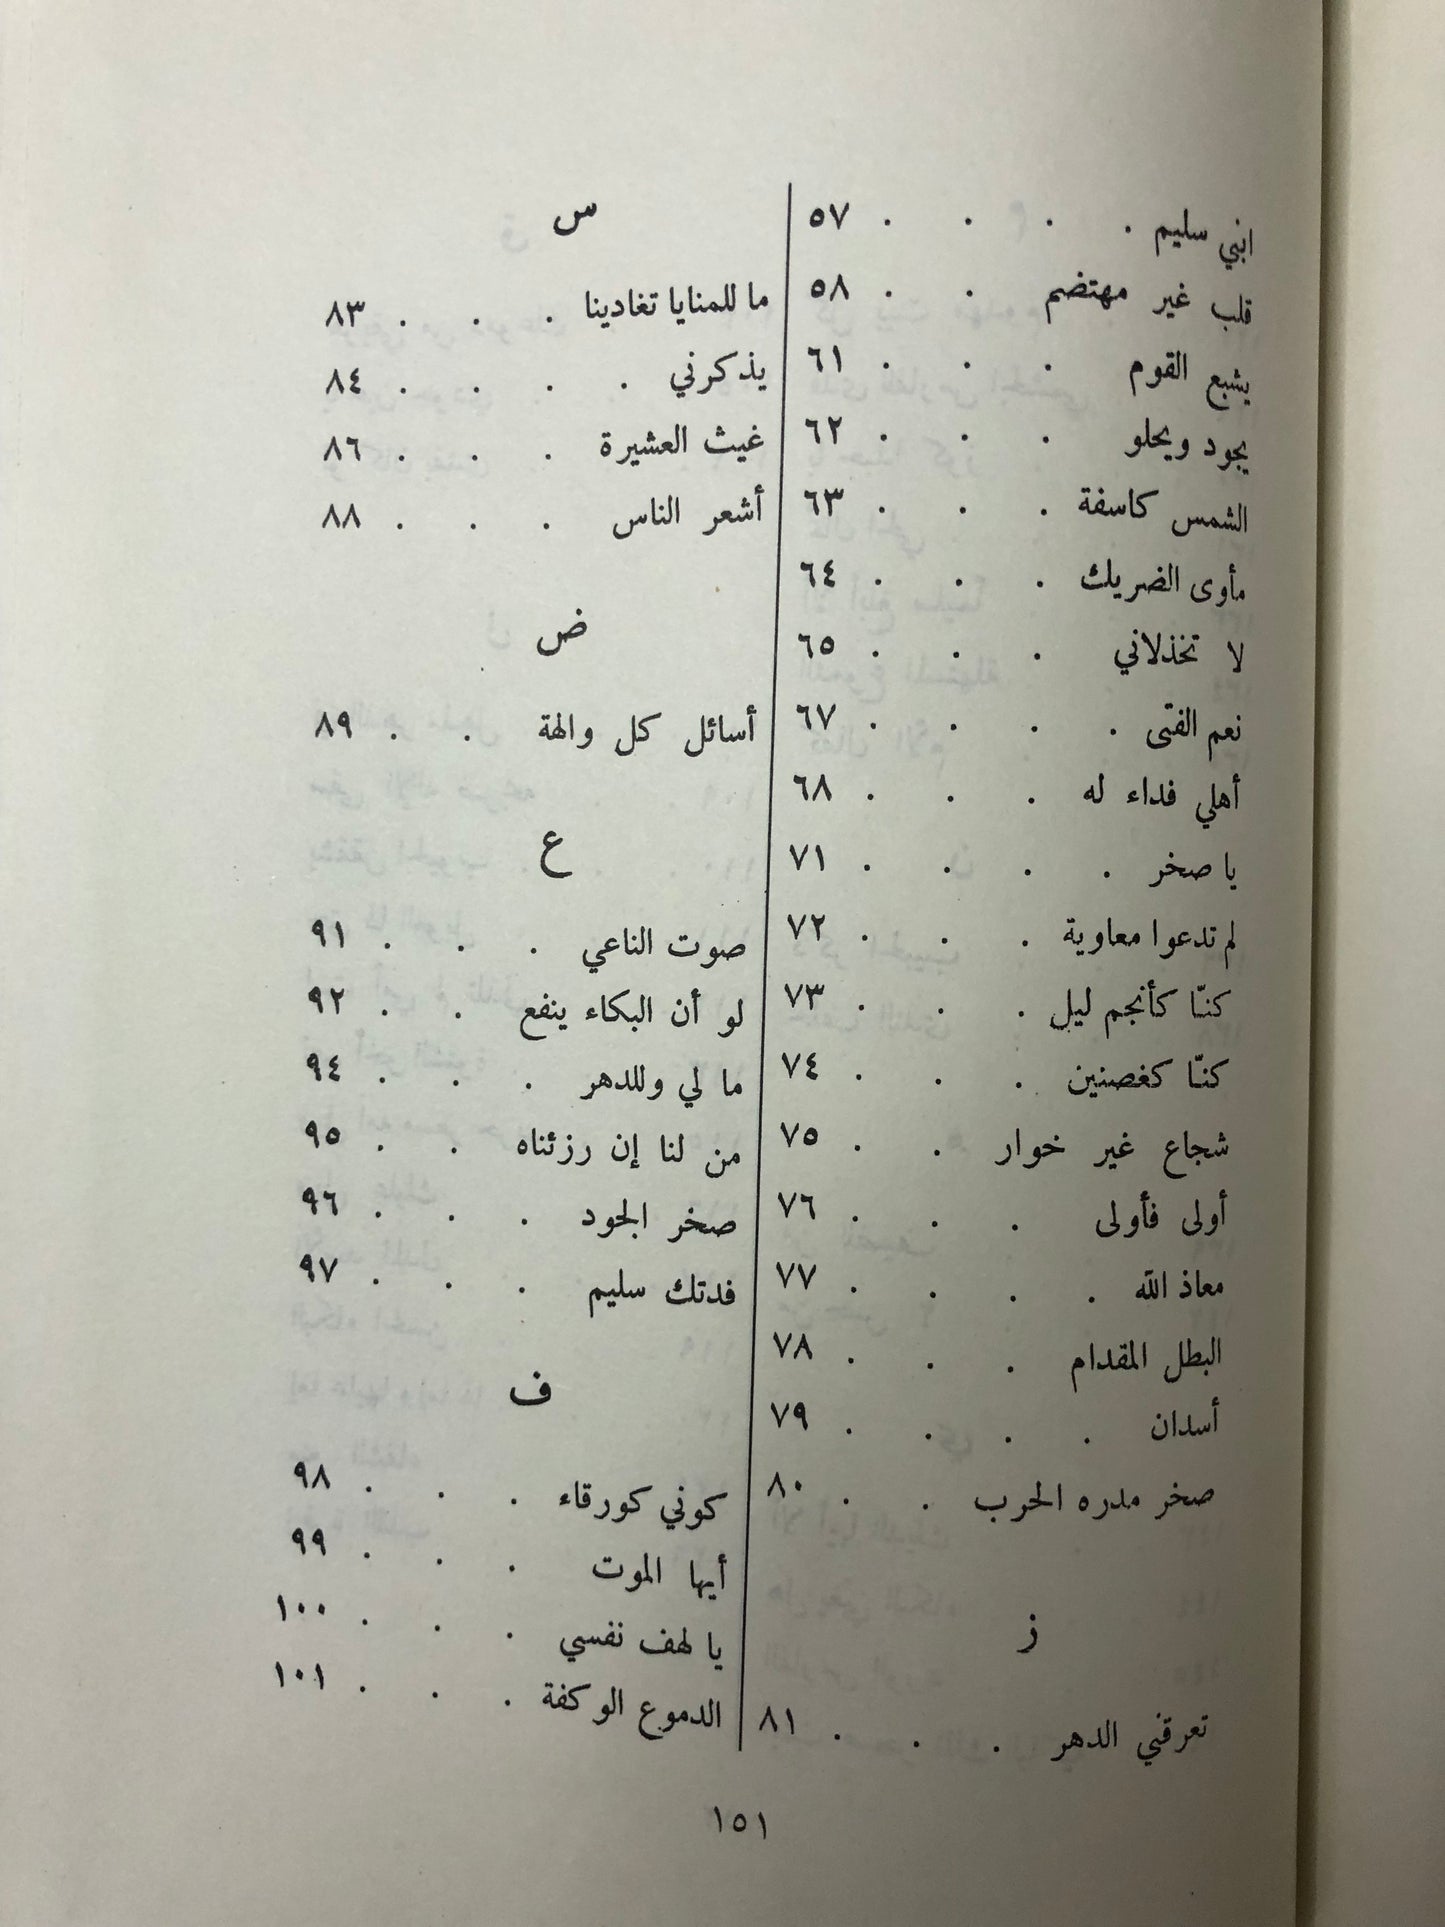 ابني سليم . . . . ٥٧
قلب غير مهتضم . . ٥٨
يشبع القوم . . . ٦١
يجود ويحلو . . . ٦٢
الشمس كاسفة . . . ٦٣
مأوى الضريك . . . ٦٤
لا تخذلاني . . . ٦٥
نعم الفتى . . . . ٦٧
أهلي فداء له . . . ٦٨
يا صخر . . . . ٧١
لم تدعوا معاوية . . . ٧٢
كنّا كأنجم ليل . . . ٧٣
كنّا كغصنين . . . ٧٤
شجاع غير خوار . . ٧٥
أولى فأولى . . . ٧٦
معاذ الله . . . . ٧٧
البطل المقدام . . . ٧٨
أسدان . . . . ٧٩
صخر مدره الحرب . . ٨٠
ز
تعرقني الدهر . . . ٨١
س
ما للمنايا تغادينا . . . ٨٣
يذكرني . . . . ٨٤
غيث العشيرة . . . ٨٦
أشعر الناس . . . ٨٨
ض
أسائل كل والهة . . ٨٩
ع
صوت الناعي . . . ٩١
لو أن البكاء ينفع . . ٩٢
ما لي وللدهر . . . ٩٤
من لنا إن رزئناه . . ٩٥
صخر الجود . . . ٩٦
فدتك سليم . . . ٩٧
ف
كوني كورقاء . . . ٩٨
أيها الموت . . . ٩٩
يا لهف نفسي . . . ١٠٠
الدموع الوكفة . . . ١٠١
١٥١